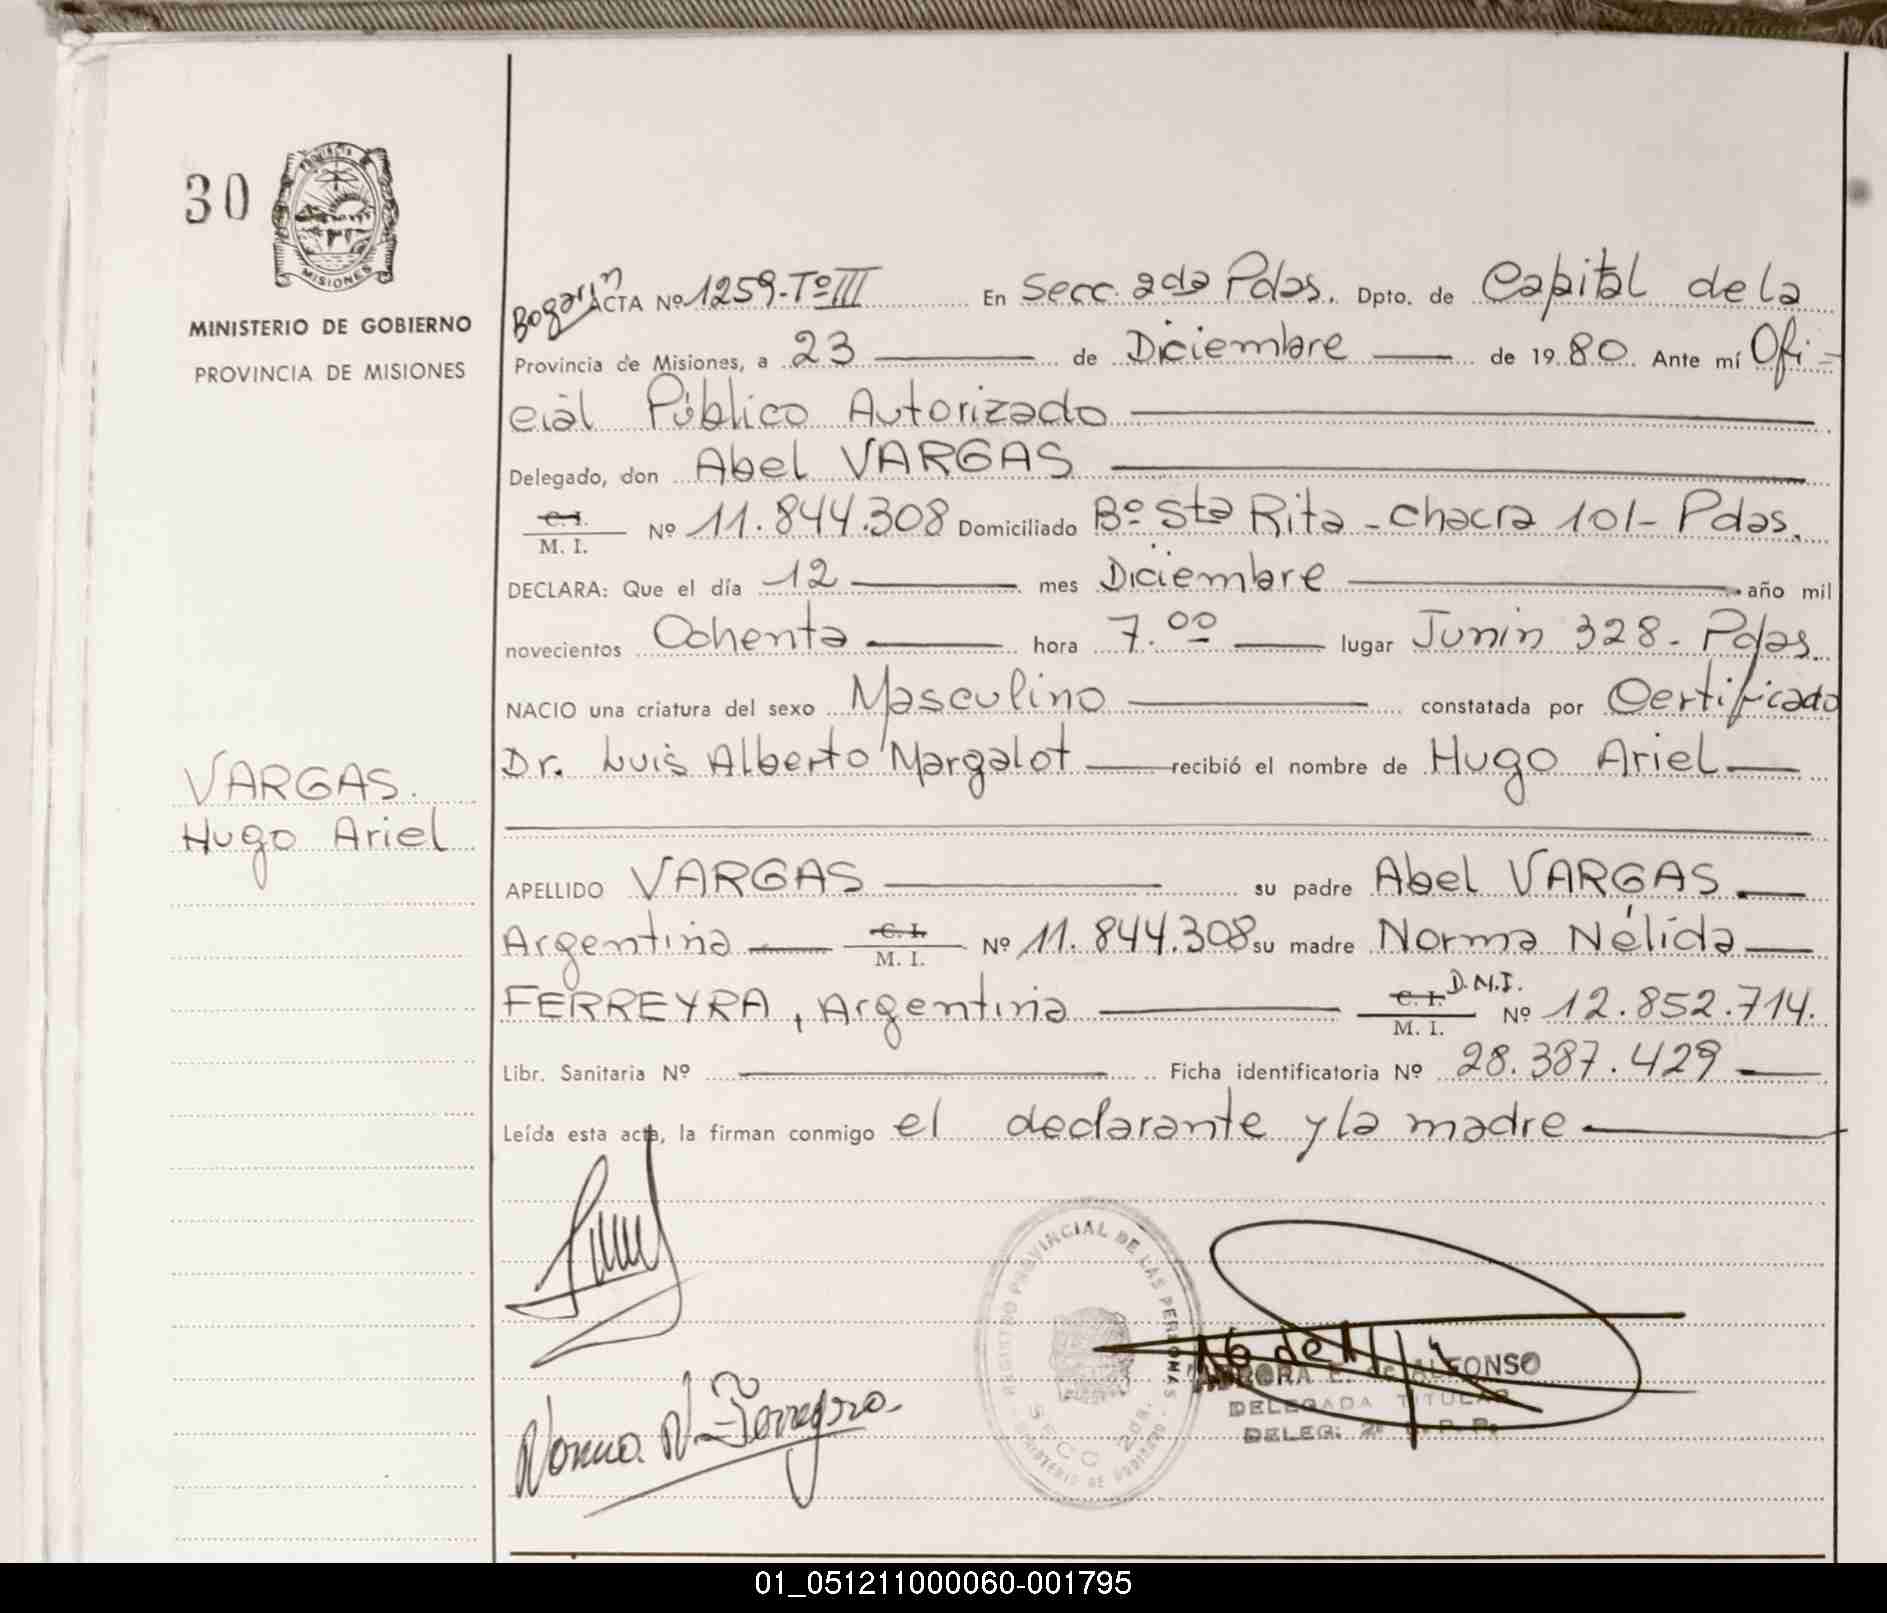 30
PROVINCIA DE
MISIONES
MINISTERIO DE GOBIERNO
PROVINCIA DE MISIONES
VARGAS.
Hugo Ariel
Bogarín
ACTA Nº 1259-Tº III En Secc. 2da Pdas. Dpto. de Capital de la
Provincia de Misiones, a 23 de Diciembre de 1980. Ante mí Ofi-
cial Público Autorizado
Delegado, don Abel VARGAS
C. I. / M. I. Nº 11.844.308 Domiciliado Bº Sta Rita - chacra 101 - Pdas.
DECLARA: Que el día 12 mes Diciembre año mil
novecientos Ochenta hora 7.00 lugar Junín 328 - Pdas.
NACIO una criatura del sexo Masculino constatada por Certificado
Dr. Luis Alberto Margalot recibió el nombre de Hugo Ariel
APELLIDO VARGAS su padre Abel VARGAS
Argentina C. I. / M. I. Nº 11.844.308 su madre Norma Nélida
FERREYRA, Argentina C. I. / M. I. D.N.I. Nº 12.852.714.
Libr. Sanitaria Nº Ficha identificatoria Nº 28.387.429
Leída esta acta, la firman conmigo el declarante y la madre
REGISTRO PROVINCIAL DE LAS PERSONAS
SECC 2da.
MINISTERIO DE GOBIERNO
E. de ALFONSO
DELEGADA TITULAR
DELEG. 2ª R. P. P.
Norma N. Ferreyra.
01_051211000060-001795